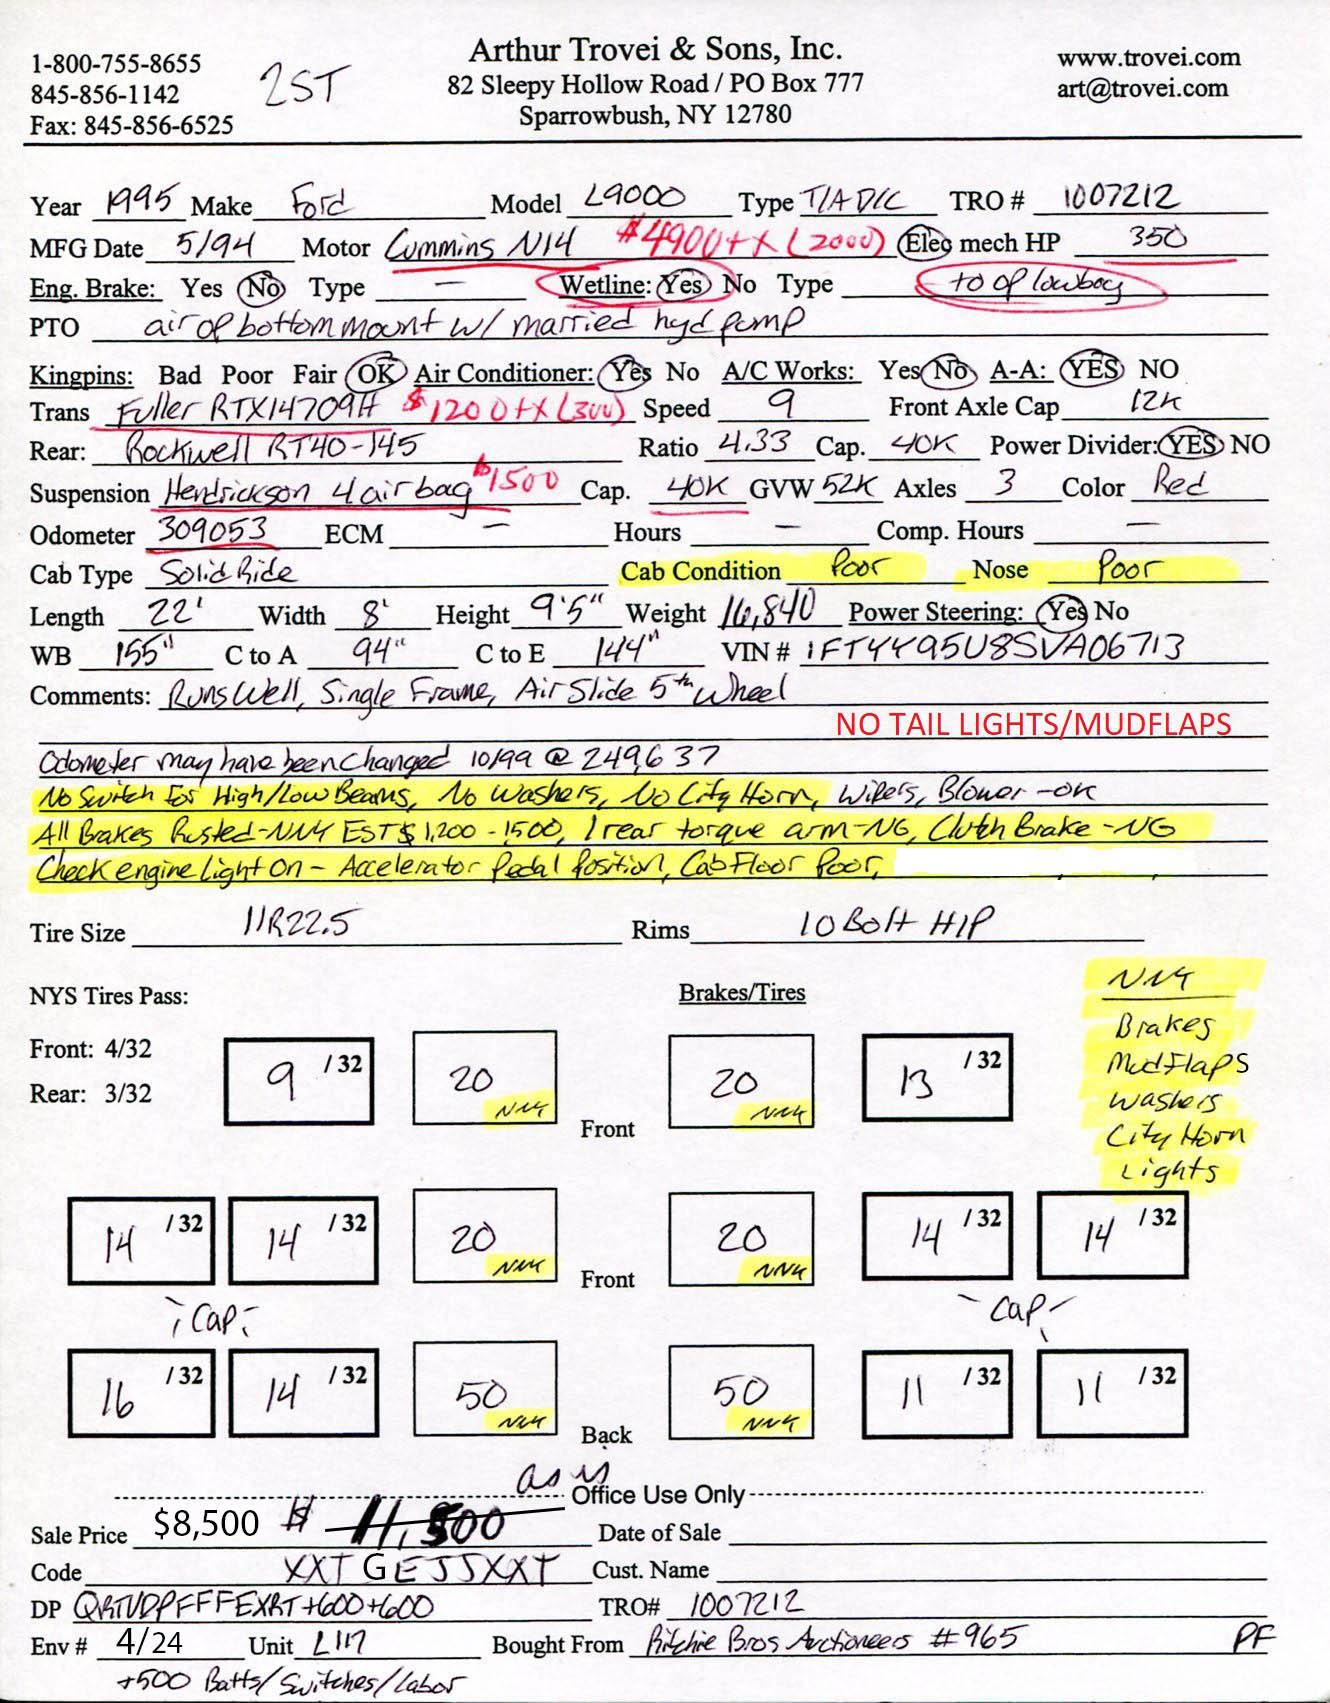 Arthur Trovei & Sons, Inc.
82 Sleepy Hollow Road / PO Box 777
Sparrowbush, NY 12780
1-800-755-8655
845-856-1142
Fax: 845-856-6525
2ST
www.trovei.com
art@trovei.com
Year 1995 Make Ford Model L9000 Type T/A D/C TRO # 1007212
MFG Date 5/94 Motor Cummins N14 $4900+X (2000) Elec mech HP 350
Eng. Brake: Yes No Type — Wetline: Yes No Type to op lowboy
PTO air op bottom mount w/ married hyd pump
Kingpins: Bad Poor Fair OK Air Conditioner: Yes No A/C Works: Yes No A-A: YES NO
Trans Fuller RTX14709H $1200+X (300) Speed 9 Front Axle Cap 12K
Rear: Rockwell RT40-145 Ratio 4.33 Cap. 40K Power Divider: YES NO
Suspension Hendrickson 4 air bag $1500 Cap. 40K GVW 52K Axles 3 Color Red
Odometer 309053 ECM — Hours — Comp. Hours —
Cab Type Solid Ride Cab Condition Poor Nose Poor
Length 22' Width 8' Height 9'5" Weight 16,840 Power Steering: Yes No
WB 155" C to A 94" C to E 144" VIN # 1FTYY95U8SVA06713
Comments: Runs Well, Single Frame, Air Slide 5th Wheel
NO TAIL LIGHTS/MUDFLAPS
Odometer may have been changed 10/99 @ 249,637
No Switch for High/Low Beams, No Washers, No City Horn, Wipers, Blower-OK
All Brakes Rusted-NNY EST $1,200-1500, 1 rear torque arm-NG, Clutch Brake-NG
Check engine Light On - Accelerator Pedal Position, Cab Floor Poor,
Tire Size 11R22.5 Rims 10 Bolt HIP
NYS Tires Pass: Brakes/Tires
Front: 4/32
Rear: 3/32
NNY
Brakes
MudFlaps
Washers
City Horn
Lights
9 /32 20 NNY Front 20 NNY 13 /32
14 /32 14 /32 20 NNY Front 20 NNY 14 /32 14 /32
Cap Cap
16 /32 14 /32 50 NNY Back 50 NNY 11 /32 11 /32
as is
Office Use Only
Sale Price $8,500 $ 11,500 Date of Sale
Code XXTGEJJXXT Cust. Name
DP QRTVDPFFFEXRT+600+600 TRO# 1007212
Env # 4/24 Unit L117 Bought From Ritchie Bros Auctioneers #965 PF
+500 Batts/Switches/Labor